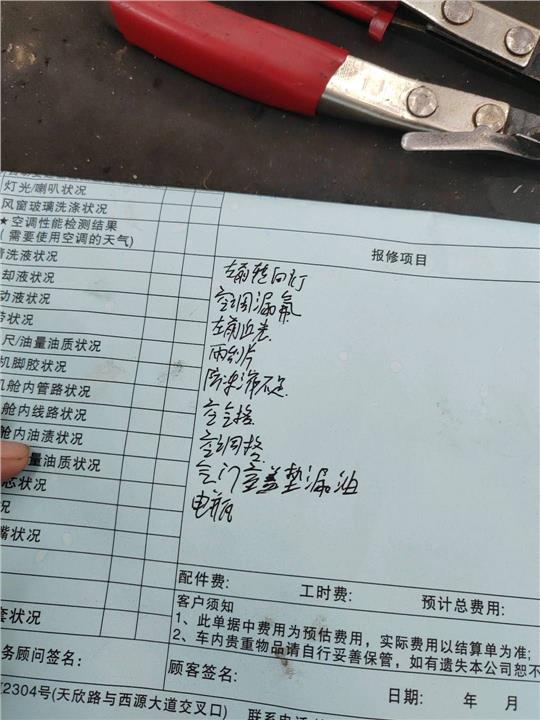 灯光/喇叭状况
风窗玻璃洗涤状况
★空调性能检测结果
(需要使用空调的天气)
清洗液状况
却液状况
动液状况
带状况
尺/油量油质状况
机脚胶状况
机舱内管路状况
舱内线路状况
舱内油渍状况
量油质状况
芯状况
况
嘴状况
套状况
报修项目
左前转向灯
空调漏氟
左前近光
雨刮片
防冻液不足
空气格
空调格
气门室盖垫漏油
电瓶
配件费: 工时费: 预计总费用:
客户须知
1、此单据中费用为预估费用，实际费用以结算单为准;
2、车内贵重物品请自行妥善保管，如有遗失本公司恕不
务顾问签名: 顾客签名:
日期: 年 月
2304号(天欣路与西源大道交叉口) 联系电话